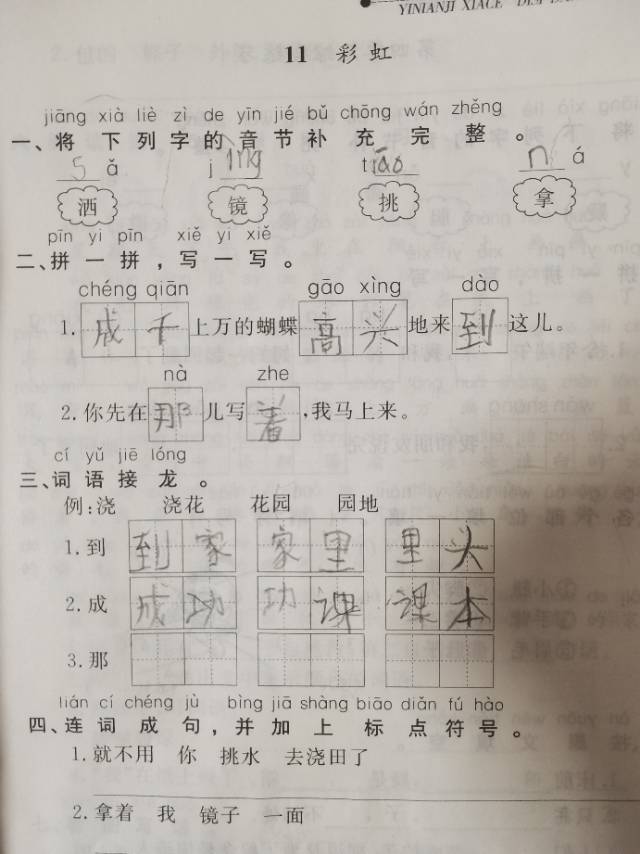 YINIANJI XIACE
11 彩虹
jiāng xià liè zì de yīn jié bǔ chōng wán zhěng
一、将下列字的音节补充完整。
s ǎ j ìng tiāo n á
洒 镜 挑 拿
pīn yi pīn xiě yi xiě
二、拼一拼，写一写。
chéng qiān gāo xìng dào
1. 成千上万的蝴蝶高兴地来到这儿。
nà zhe
2. 你先在那儿写着，我马上来。
cí yǔ jiē lóng
三、词语接龙。
例:浇 浇花 花园 园地
1. 到 到家 家里 里头
2. 成 成功 功课 课本
3. 那
lián cí chéng jù bìng jiā shàng biāo diǎn fú hào
四、连词成句，并加上标点符号。
1. 就不用 你 挑水 去浇田了
2. 拿着 我 镜子 一面